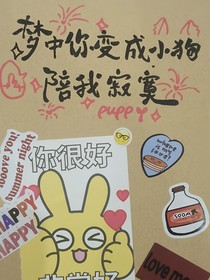 梦中你变成小狗
陪我寂寞
puppy
looove you!
summer night
你很好
HAPPY
HAPPY
Love me